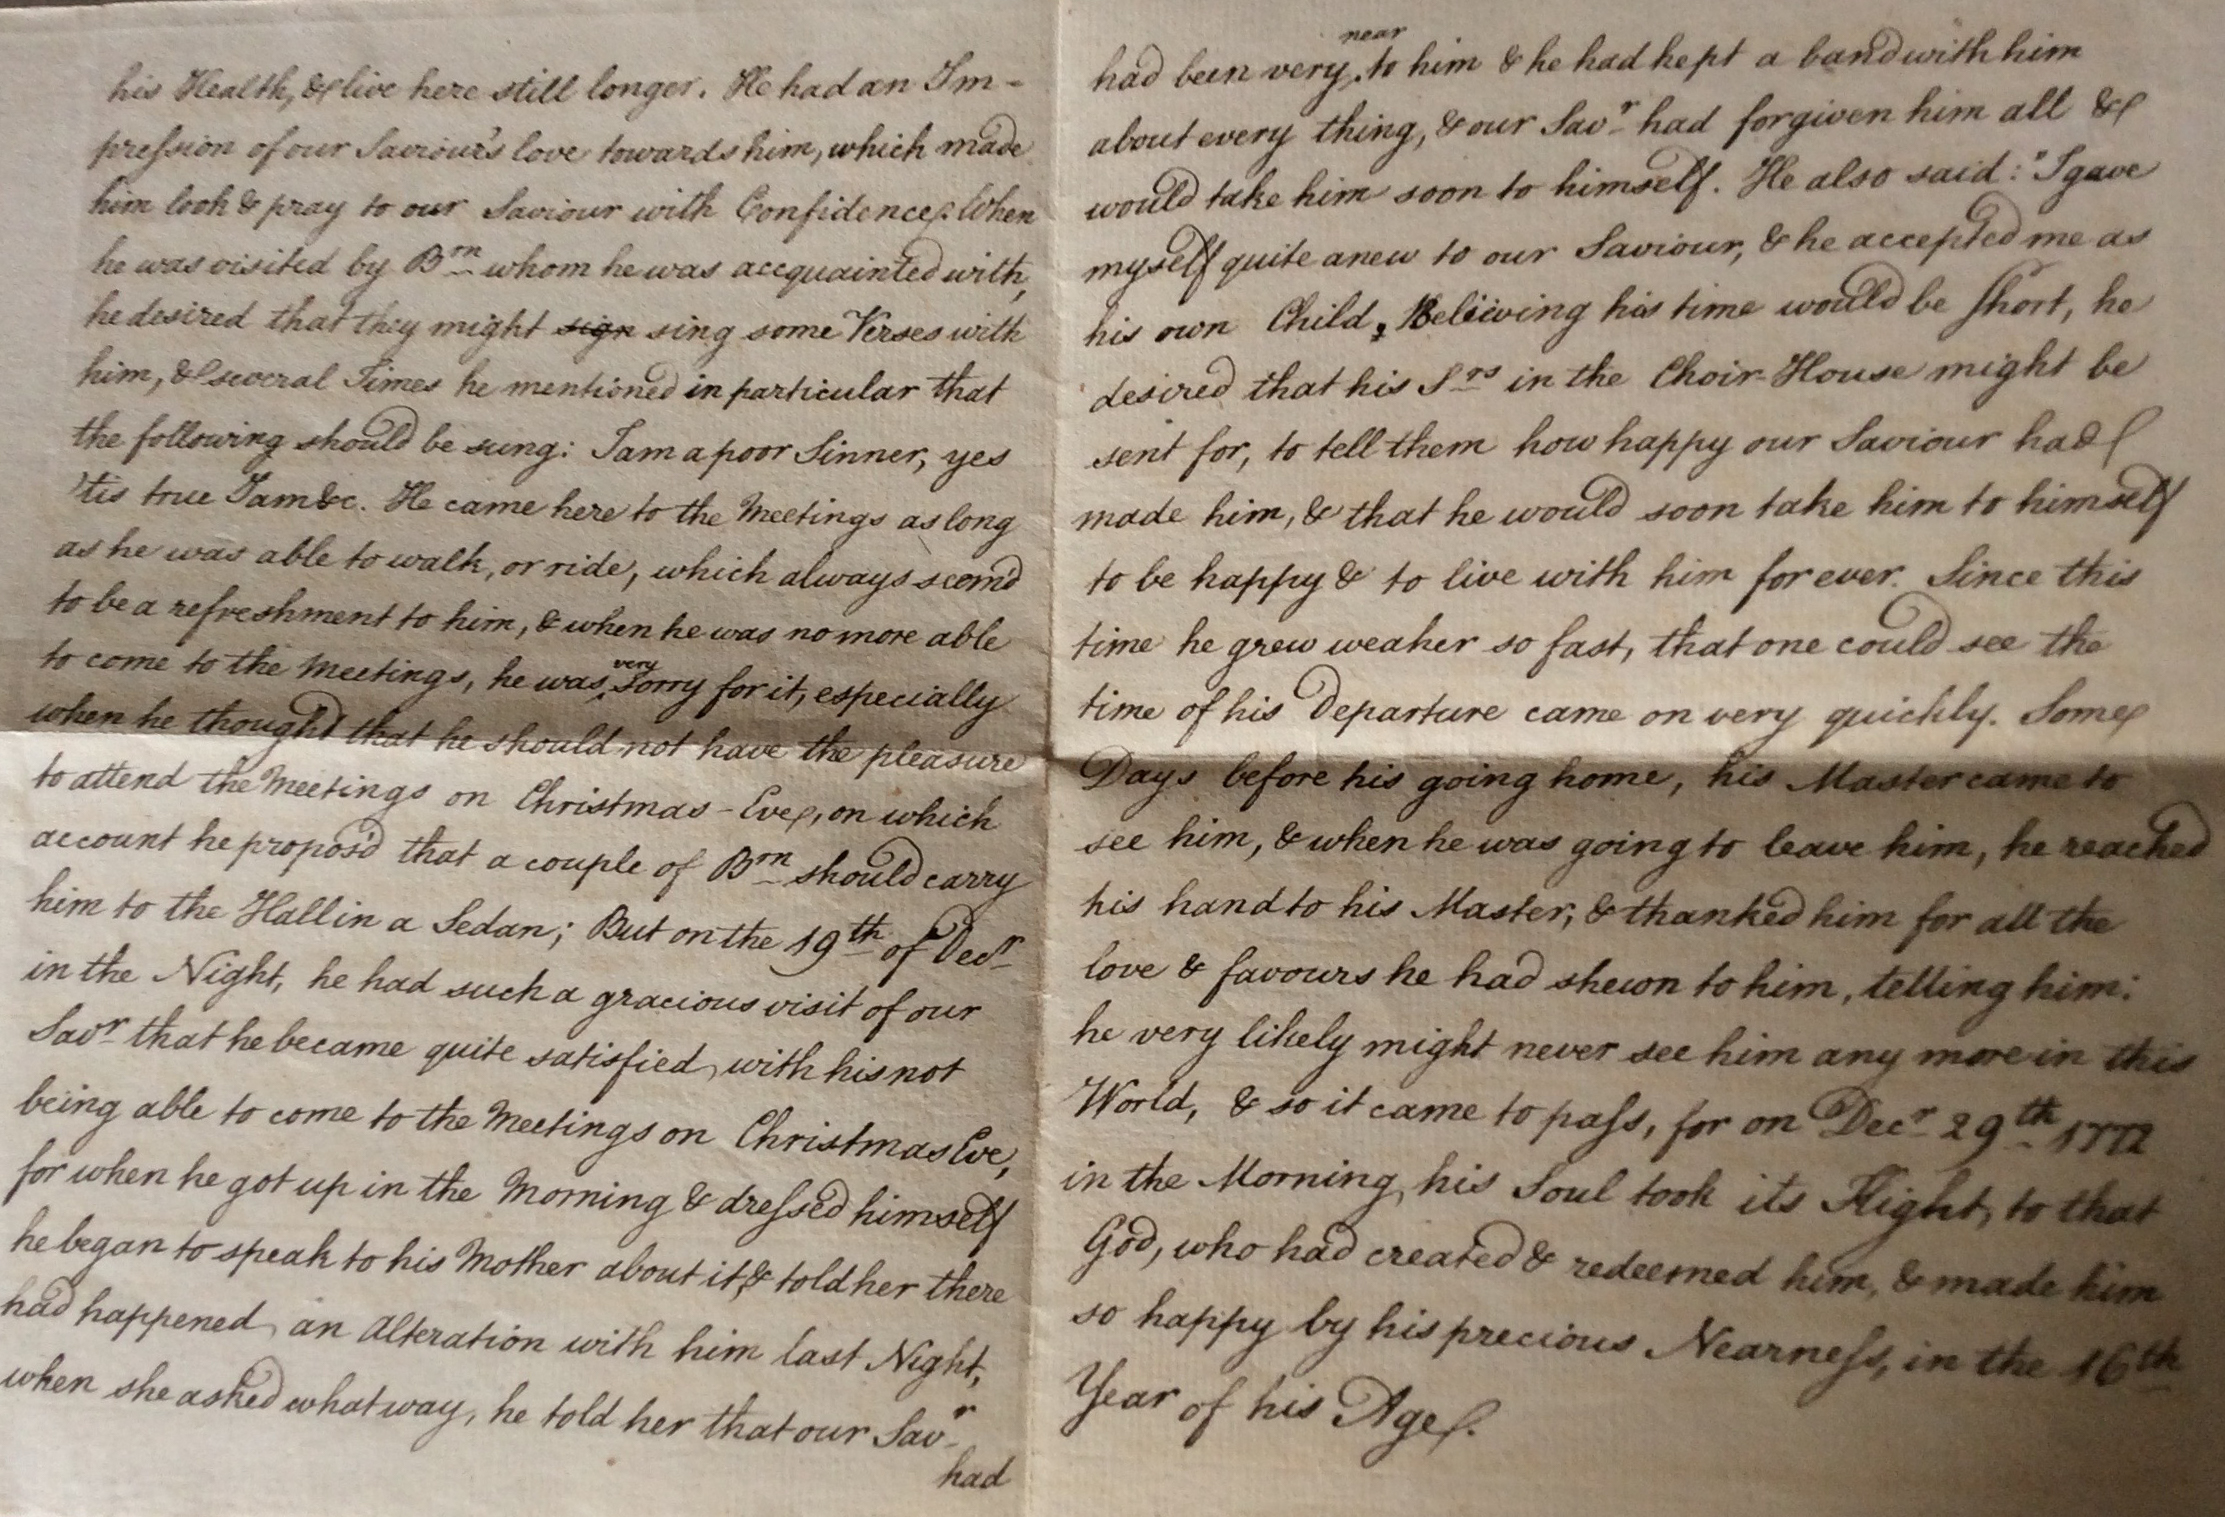 his Health, & live here still longer. He had an Im-
pression of our Saviour's love towards him, which made
him look & pray to our Saviour with Confidence. When
he was visited by Brn whom he was accquainted with,
he desired that they might sign sing some Verses with
him, & several Times he mentioned in particular that
the following should be sung: I am a poor Sinner, yes
'tis true I am &c. He came here to the Meetings as long
as he was able to walk, or ride, which always seem'd
to be a refreshment to him, & when he was no more able
to come to the Meetings, he was very sorry for it, especially
when he thought that he should not have the pleasure
to attend the Meetings on Christmas-Eve, on which
account he propos'd that a couple of Brn should carry
him to the Hall in a Sedan; But on the 19th of Decr
in the Night, he had such a gracious visit of our
Savr that he became quite satisfied, with his not
being able to come to the Meetings on Christmas Eve,
for when he got up in the Morning & dressed himself
he began to speak to his Mother about it, & told her there
had happened, an Alteration with him last Night,
when she asked what way, he told her that our Savr
had
had been very near to him & he had kept a band with him
about every thing, & our Savr had forgiven him all &
would take him soon to himself. He also said: "I gave
myself quite anew to our Saviour, & he accepted me as
his own Child. Beleiving his time would be short, he
desired that his Srs in the Choir-House might be
sent for, to tell them how happy our Saviour had
made him, & that he would soon take him to himself
to be happy & to live with him for ever. Since this
time he grew weaker so fast, that one could see the
time of his Departure came on very quickly. Some
Days before his going home, his Master came to
see him, & when he was going to leave him, he reached
his hand to his Master, & thanked him for all the
love & favours he had shewn to him, telling him:
he very likely might never see him any more in this
World, & so it came to pass, for on Decr 29th 1772
in the Morning, his Soul took its Flight, to that
God, who had created & redeemed him, & made him
so happy by his precious Nearness, in the 16th
Year of his Age.